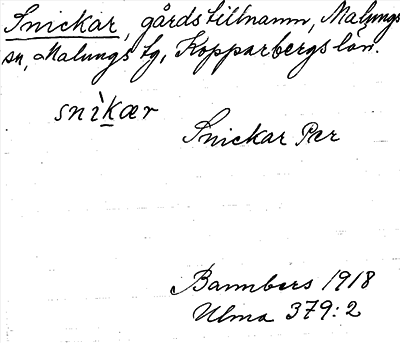 Snickar, gårdstillnamn, Malungs
sn, Malungs tg, Kopparbergs län.
snìkær
Snickar Per
Bannbers 1918
Ulma 379:2